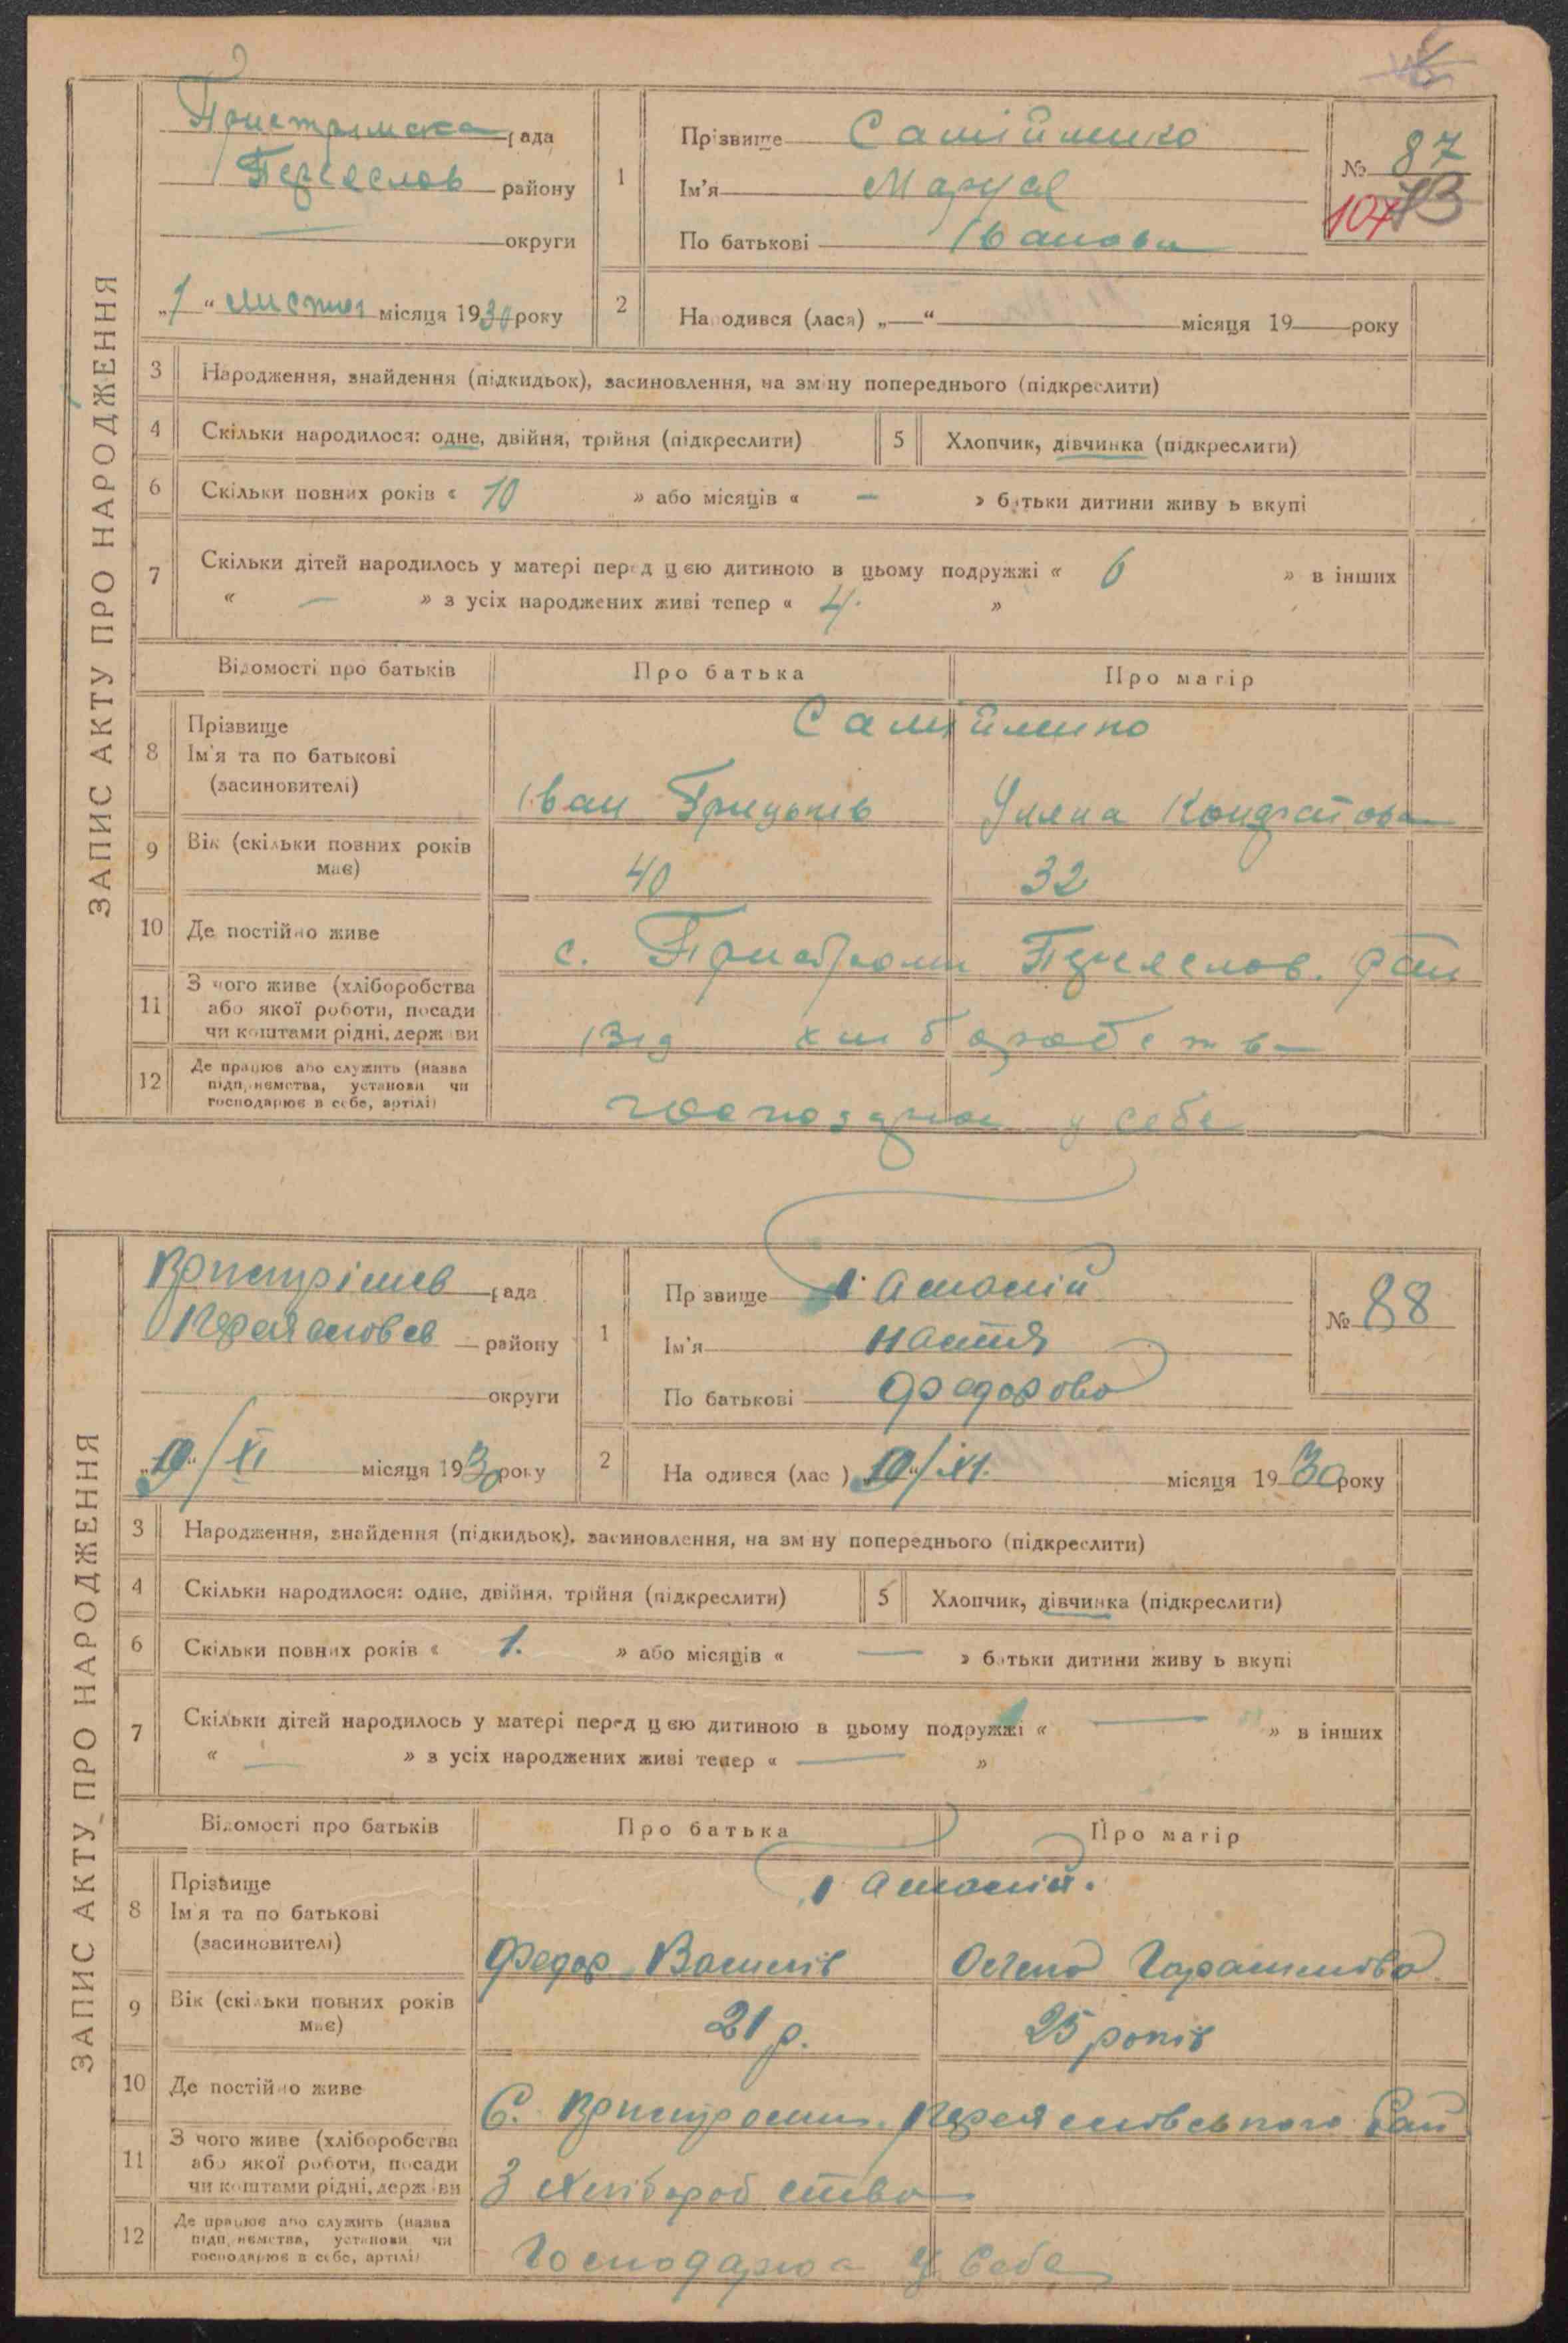 ЗАПИС АКТУ ПРО НАРОДЖЕННЯ
рада
Переяслов району
округи
„1“ листоп місяця 1930 року
1 Прізвище Самійленко
Ім'я Маруся
По батькові Іванова
№ 87
107
2 Народився (лася) „—“ — місяця 19— року
3 Народження, знайдення (підкидьок), засиновлення, на зміну попереднього (підкреслити)
4 Скільки народилося: одне, двійня, трійня (підкреслити)
5 Хлопчик, дівчинка (підкреслити)
6 Скільки повних років « 10 » або місяців « — » батьки дитини живуть вкупі
7 Скільки дітей народилось у матері перед цією дитиною в цьому подружжі « 6 » в інших
« — » з усіх народжених живі тепер « 4. »
Відомості про батьків Про батька Про матір
8 Прізвище
Ім'я та по батькові
(засиновителі)
Самійленко
Іван Грицьків Уляна Кондратова
9 Вік (скільки повних років має)
40 32
10 Де постійно живе
с. Пристроми Переяслов. рай
11 З чого живе (хліборобства
або якої роботи, посади
чи коштами рідні, держави
Від хліборобства
12 Де працює або служить (назва
підприємства, установи чи
господарює в себе, артілі)
у себе
ЗАПИС АКТУ ПРО НАРОДЖЕННЯ
рада
району
округи
„10“/XI місяця 1930 року
1 Прізвище
Ім'я Настя
По батькові Федорова
№ 88
2 Народився (лася) „10“/XI. місяця 1930 року
3 Народження, знайдення (підкидьок), засиновлення, на зміну попереднього (підкреслити)
4 Скільки народилося: одне, двійня, трійня (підкреслити)
5 Хлопчик, дівчинка (підкреслити)
6 Скільки повних років « 1. » або місяців « — » батьки дитини живуть вкупі
7 Скільки дітей народилось у матері перед цією дитиною в цьому подружжі « — » в інших
« — » з усіх народжених живі тепер « — »
Відомості про батьків Про батька Про матір
8 Прізвище
Ім'я та по батькові
(засиновителі)
Федор Василів
9 Вік (скільки повних років має)
21 р. 25 років
10 Де постійно живе
С. Пристроми Переясловського Рай
11 З чого живе (хліборобства
або якої роботи, посади
чи коштами рідні, держави
З Хліборобства
12 Де працює або служить (назва
підприємства, установи чи
господарює в себе, артілі)
Господарює у Себе